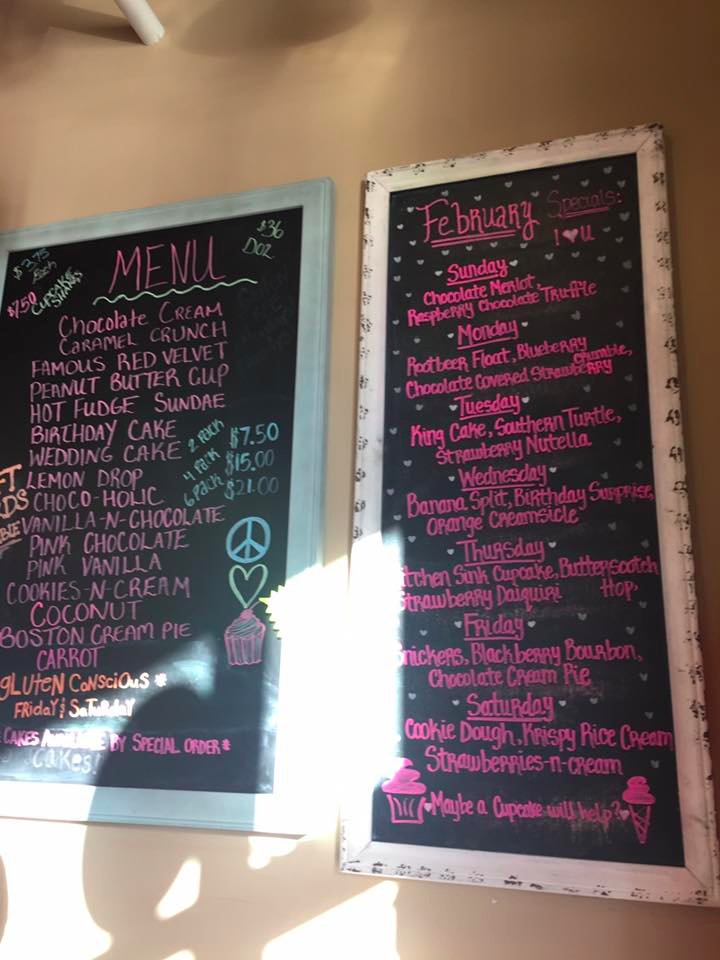 $3.75
each
$7.50
CUPCAKE
SHAKES
$36
DOZ
MENU
Chocolate Cream
Caramel Crunch
Famous Red Velvet
Peanut Butter Cup
Hot Fudge Sundae
Birthday Cake
Wedding Cake
Lemon Drop
Choco-Holic
Vanilla-n-Chocolate
Pink Chocolate
Pink Vanilla
Cookies-n-Cream
Coconut
Boston Cream Pie
Carrot
2 Pack $7.50
4 Pack $15.00
6 Pack $21.00
Gluten Conscious *
Friday & Saturday
Cakes Available By Special Order*
Cakes!
February Specials:
I ♥ U
Sunday
Chocolate Merlot,
Raspberry Chocolate Truffle
Monday
Rootbeer Float, Blueberry
Crumble,
Chocolate Covered Strawberry
Tuesday
King Cake, Southern Turtle,
Strawberry Nutella
Wednesday
Banana Split, Birthday Surprise,
Orange Creamsicle
Thursday
itchen Sink Cupcake, Butterscotch
Strawberry Daiquiri Hop,
Friday
Snickers, Blackberry Bourbon,
Chocolate Cream Pie
Saturday
Cookie Dough, Krispy Rice Cream
Strawberries-n-cream
♥Maybe a Cupcake will help?♥